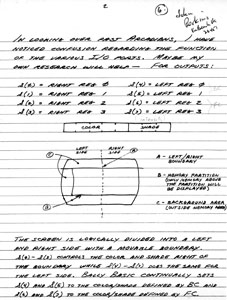 2
John
Perkins
IN LOOKING OVER PAST ARCADIANS, I HAVE
NOTICED CONFUSION REGARDING THE FUNCTION
OF THE VARIOUS I/O PORTS. MAYBE MY
OWN RESEARCH WILL HELP — FOR OUTPUTS:
&(0) = RIGHT REG 0 &(4) = LEFT REG 0
&(1) = RIGHT REG 1 &(5) = LEFT REG 1
&(2) = RIGHT REG 2 &(6) = LEFT REG 2
&(3) = RIGHT REG 3 &(7) = LEFT REG 3
COLOR SHADE
LEFT SIDE RIGHT SIDE
A - LEFT/RIGHT
BOUNDARY
B - MEMORY PARTITION
(ONLY MEMORY ABOVE
THE PARTITION WILL
BE DISPLAYED)
C - BACKGROUND AREA
(OUTSIDE MEMORY AREA)
THE SCREEN IS LOGICALLY DIVIDED INTO A LEFT
AND RIGHT SIDE WITH A MOVABLE BOUNDARY.
&(0) - &(3) CONTROLS THE COLOR AND SHADE RIGHT OF
THE BOUNDARY WHILE &(4) - &(7) DOES THE SAME FOR
THE LEFT SIDE. BALLY BASIC CONTINUALLY SETS
&(4) AND &(5) TO THE COLOR/SHADE DEFINED BY BC AND
&(6) AND &(7) TO THE COLOR/SHADE DEFINED BY FC.